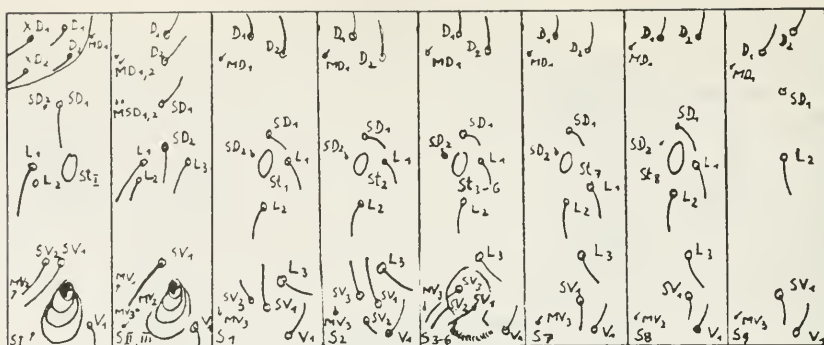 XD1 D1 MD1
XD2 D2
SD2 SD1
L1 L2 StI
SV2 SV1
MV2
SI V1
D1
D2
MD1,2
MSD1,2 SD1
SD2
L1 L2 L3
SV1
MV1
MV3 MV2
SII,III V1
D1 D2
MD1
SD1
SD2 L1
St1
L2
L3
SV3 SV1
MV3
S1 V1
D1 D2
MD1
SD1
SD2 L1
St2
L2
L3
SV3 SV1
MV3 SV2
S2 V1
D1 D2
MD1
SD1
SD2 L1
St3-6
L2
L3
SV3
SV2 SV1
MV3
S3-6 V1
D1 D2
MD1
SD1
SD2
St7
L1
L2
L3
SV1
MV3
S7 V1
D1 D2
MD1
SD1
SD2
L1
St8
L2
L3
SV1
MV2
S8 V1
D1 D2
MD1
SD1
L2
SV1
MV3
S9 V1